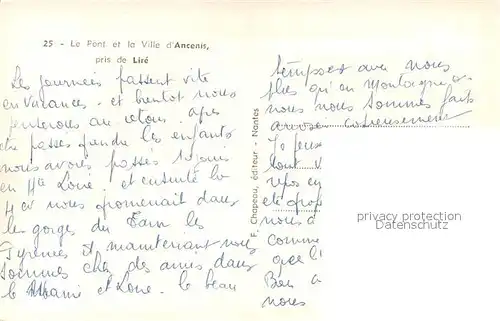 25 - Le Pont et la Ville d'Ancenis,
pris de Liré
Les journées passent vite
en vacances. et bientot nous
penserons au retour. apres
etre passes les enfants
nous avons passes
en Hte Loire. et ensuite la
nous promenait dans
les gorges du Tarn les
Pyrenees et maintenant nous
sommes chez des amis dans
le et Loire. le beau
temps avec nous
plus qu'en Montagne
nous nous sommes faits
arroser copieusement
Je pense
tout v
repos en
ete prof
nous a
comme
que l'
Bons
nous
F. Chapeau, éditeur - Nantes
privacy protection
Datenschutz